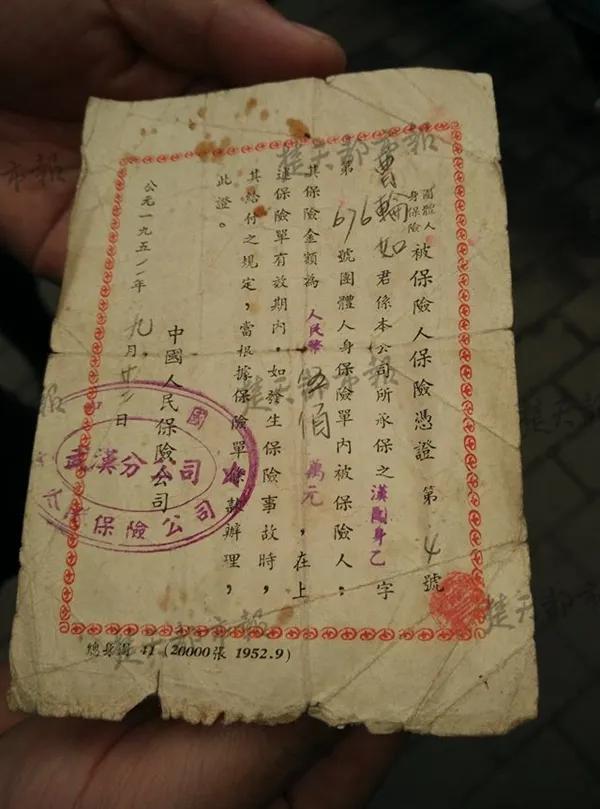 團體人
身保險
被保險人保險憑證 第 4 號
曹輪如 君係本公司所承保之 漢團身乙 字
第 676 號團體人身保險單內被保險人，
其保險金額為 人民幣 伍佰 萬元，在上
述保險單有效期內，如發生保險事故時，
其給付之規定，當根據保險單條款辦理，
此證。
中國人民保險公司
公元一九五二年 九月廿二日
武漢分公司
保險公司
總身團 41 (20000張 1952.9)
楚天都市報
楚天都市報
楚天都市報
楚天都市報
市報